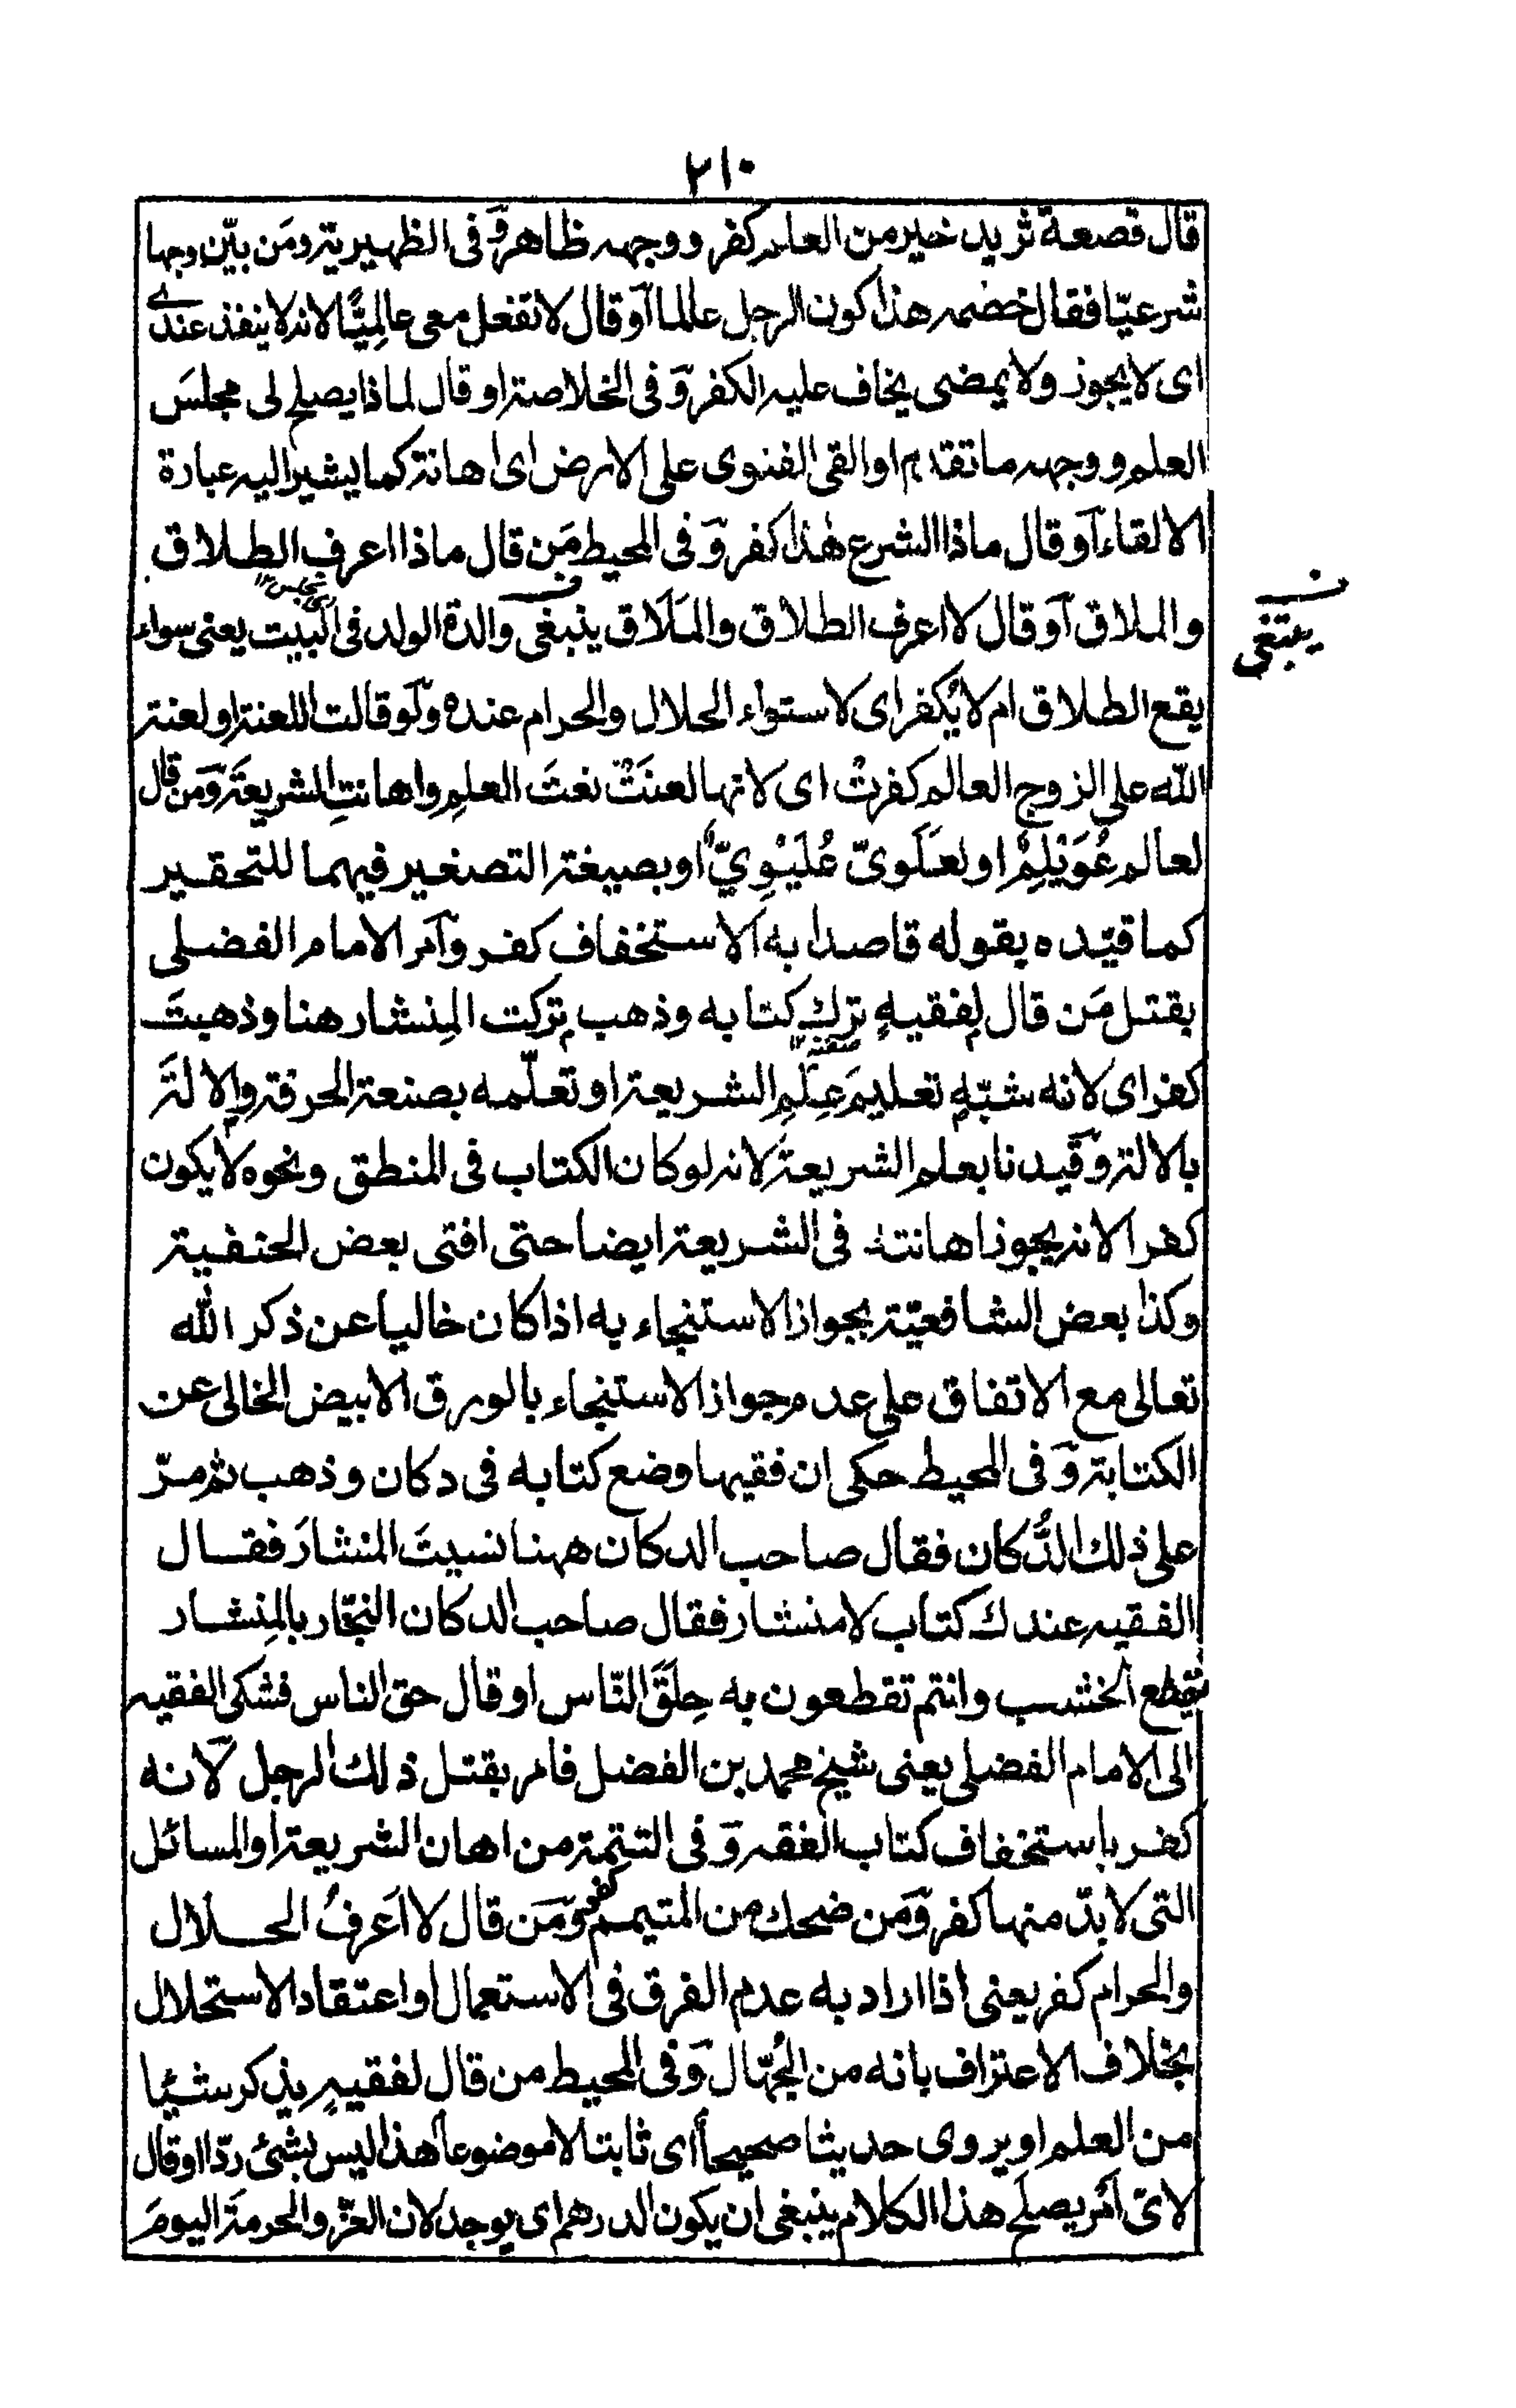 ٢١٠
قال قصعة ثريد خير من العلم كفر ووجهه ظاهر وَفى الظهيرية ومَن بيّن وجها
شرعيّا فقال خصمه هذا كون الرجل عالما اَوقال لا تفعل معى عالِمِيًّا لانه لا ينفذ عندى
اى لا يجوز ولا يمضى يخاف عليه الكفر وَفى الخلاصة او قال لماذا يصلح لى مجلسَ
العلمِ ووجهه ما تقدم او القى الفتوى على الارض اى اهانة كما يشير اليه عبارة
الالقاء اَوقال ماذا الشرع هٰذا كفر وَفى المحيط مَن قال ماذا اعرف الطلاق
والملاق اَوقال لا اعرف الطلاق والمَلَاق ينبغى والدة الولد فى البيت يعنى سواء
يبتغى
يقع الطلاق ام لا يُكفر اى لاستواء الحلال والحرام عنده وَلَو قالت اللعنة او لعنة
الله على الزوج العالم كفرتْ اى لانها لعنَتْ نعتَ العلمِ واهانتِ الشريعةَ وَمَن قال
لعالم عُوَيْلِمٌ او لعَلَوىّ عُلَيْوِيّ او بصيغة التصغير فيهما للتحقير
كما قيّده بقوله قاصدا به الاستخفاف كفر وآمر الامام الفضلى
بقتل مَن قال لِفقيهٍ ترك كتابه وذهب تركت المِنشار هنا وذهبتَ
كفر اى لانه شبّهِ تعليمَ عِلمِ الشريعة او تعلّمه بصنعة الحرفة والالةَ
بالالة وَقيدنا بعلم الشريعةَ لانه لو كان الكتاب فى المنطق ونحوه لا يكون
كفرا لانه يجوز اهانتهٗ فى الشريعة ايضا حتى افتى بعض الحنفية
وكذا بعض الشافعيّة بجواز الاستنجاء به اذا كان خاليا عن ذكر الله
تعالى مع الاتفاق على عدم جواز الاستنجاء بالورق الابيض الخالى عن
الكتابة وَفى المحيط حكى ان فقيها وضع كتابه فى دكان وذهب ثم مرّ
على ذلك الدُّكان فقال صاحب الدكان ههنا نسيتَ المنشارَ فقال
الفقيه عندك كتاب لا منشار فقال صاحب الدكان النجّار بالمِنشار
يقطع الخشب وانتم تقطعون به حِلَقَ النّاس او قال حق الناس فشكى الفقيه
الى الامام الفضلى يعنى شيخ محمد بن الفضل فامر بقتل ذلك الرجل لانه
كفر باستخفاف كتاب الفقه وَفى التتمة من اهان الشريعة او المسائل
التى لا بدّ منها كفر وَمَن ضحك من المتيمم كفر وَمَن قال لا اَعرِفُ الحلال
والحرام كفر يعنى اذا اراد به عدم الفرق فى الاستعمال او اعتقاد الاستحلال
بخلاف الاعتراف بانه من الجُهّال وَفى المحيط من قال لفقيهٍ يذكر شيئا
من العلم او يروى حديثا صحيحاً اى ثابتا لا موضوعا هذا ليس بشئ ردّا او قال
لاىّ اَمر يصلح هذا الكلام ينبغى ان يكون الدرهم اى يوجد لان العزّ والحرمةَ اليومَ